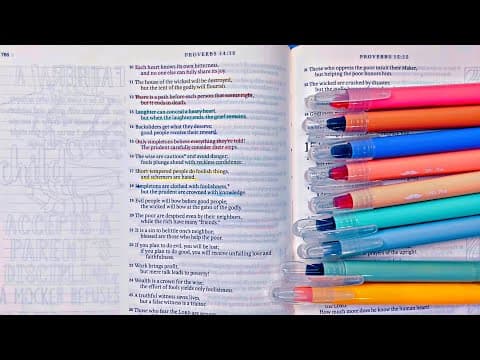 766
PROVERBS 14:10
10 Each heart knows its own bitterness,
and no one else can fully share its joy.
11 The house of the wicked will be destroyed,
but the tent of the godly will flourish.
12 There is a path before each person that seems right,
but it ends in death.
13 Laughter can conceal a heavy heart,
but when the laughter ends, the grief remains.
14 Backsliders get what they deserve;
good people receive their reward.
15 Only simpletons believe everything they're told!
The prudent carefully consider their steps.
16 The wise are cautious* and avoid danger;
fools plunge ahead with reckless confidence.
17 Short-tempered people do foolish things,
and schemers are hated.
18 Simpletons are clothed with foolishness,*
but the prudent are crowned with knowledge.
19 Evil people will bow before good people;
the wicked will bow at the gates of the godly.
20 The poor are despised even by their neighbors,
while the rich have many "friends."
21 It is a sin to belittle one's neighbor;
blessed are those who help the poor.
22 If you plan to do evil, you will be lost;
if you plan to do good, you will receive unfailing love and
faithfulness.
23 Work brings profit,
but mere talk leads to poverty!
24 Wealth is a crown for the wise;
the effort of fools yields only foolishness.
25 A truthful witness saves lives,
but a false witness is a traitor.
26 Those who fear the LORD are
PROVERBS 15:12
31 Those who oppress the poor insult their Maker,
but helping the poor honors him.
32 The wicked are crushed by disaster,
but the godly
33
34 Godliness
of the upright.
the human heart!